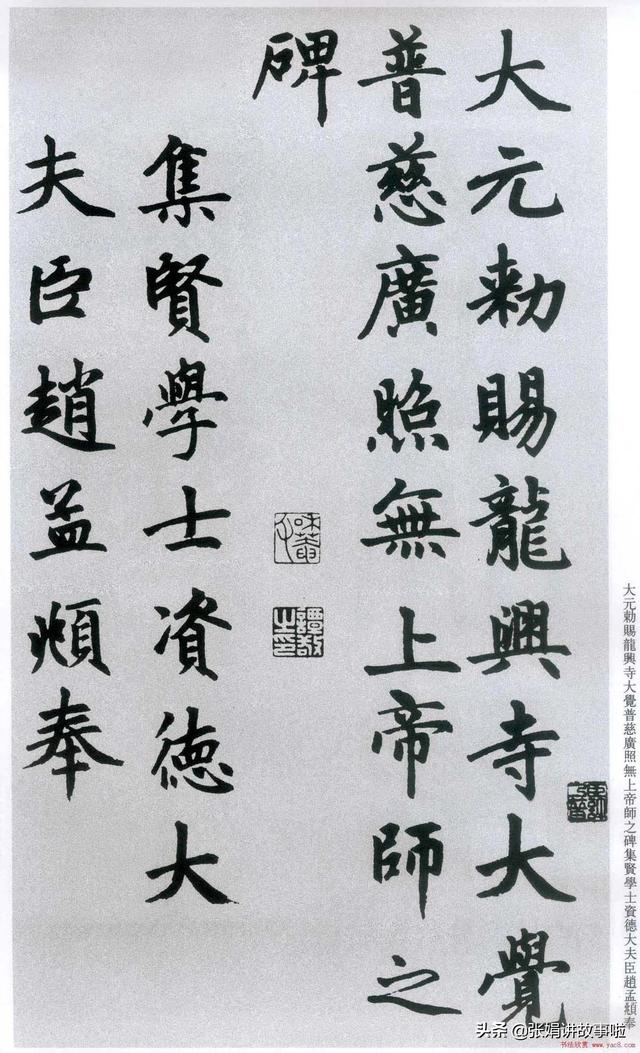 大元勅賜龍興寺大覺
普慈廣照無上帝師之
碑
集賢學士資德大
夫臣趙孟頫奉
大元勅賜龍興寺大覺普慈廣照無上帝師之碑集賢學士資德大夫臣趙孟頫奉
头条 @张娟讲故事啦
书法欣赏 www.yac8.com